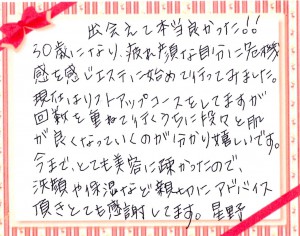 出会えて本当良かった!!
30歳になり、疲れ顔な自分に危機
感を感じエステに始めて行ってみました。
現在はリフトアップコースをしてますが
回数を重ねて行くうちに段々と肌
が良くなっていくのが分かり嬉しいです。
今まで、とても美容に疎かったので、
洗顔や保湿など親切にアドバイス
頂きとても感謝してます。星野